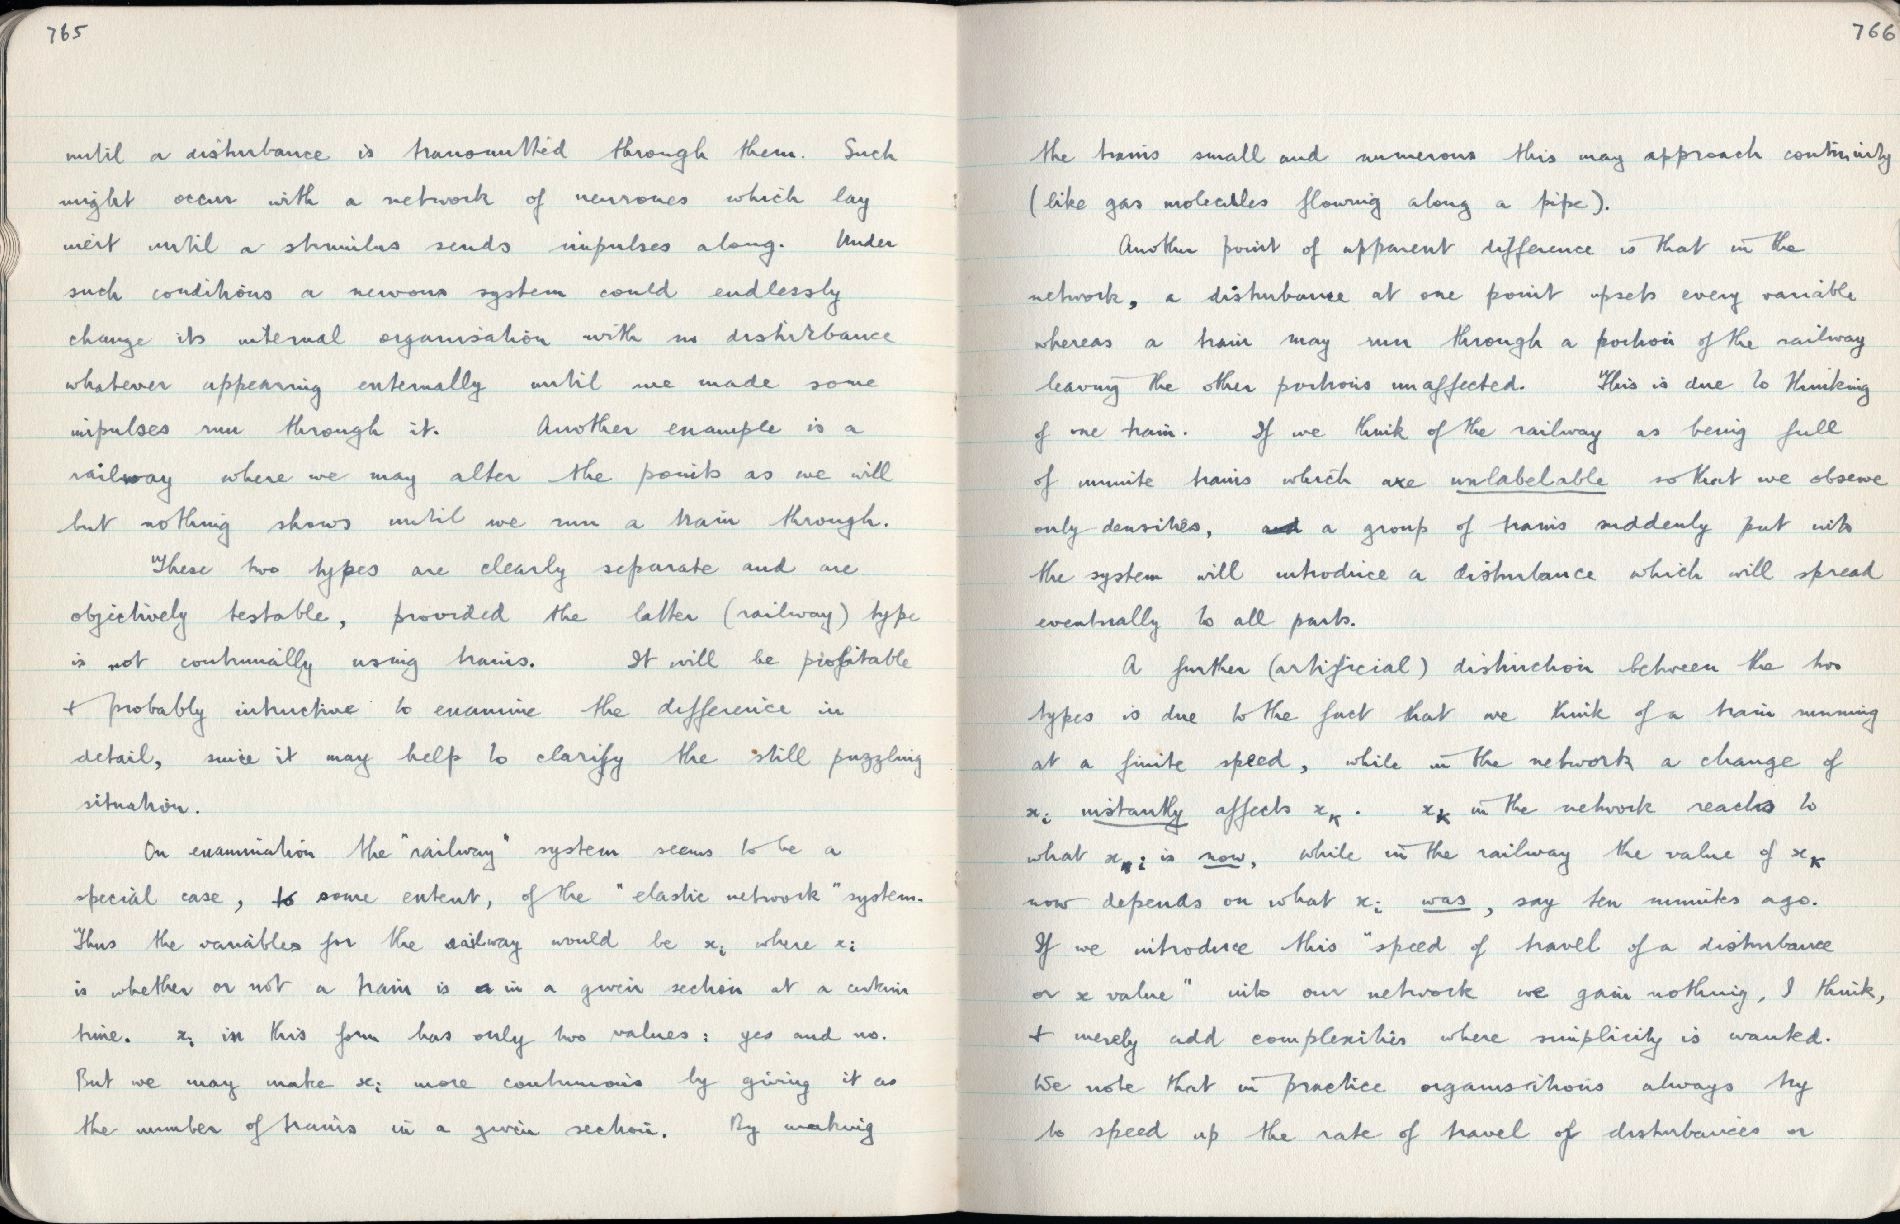 765
until a disturbance is transmitted through them. Such
might occur with a network of neurones which lay
inert until a stimulus sends impulses along. Under
such conditions a nervous system could endlessly
change its internal organisation with no disturbance
whatever appearing externally until we made some
impulses run through it. Another example is a
railway where we may alter the points as we will
but nothing shows until we run a train through.
These two types are clearly separate and are
objectively testable, provided the latter (railway) type
is not continually using trains. It will be profitable
+ probably intructive to examine the difference in
detail, since it may help to clarify the still puzzling
situation.
On examination the "railway" system seems to be a
special case, to some extent, of the "elastic network" system.
Thus the variables for the railway would be xi where xi
is whether or not a train is in a given section at a certain
time. xi in this form has only two values: yes and no.
But we may make xi more continuous by giving it as
the number of trains in a given section. By making
766
the trains small and numerous this may approach continuity
(like gas molecules flowing along a pipe).
Another point of apparent difference is that in the
network, a disturbance at one point upsets every variable
whereas a train may run through a portion of the railway
leaving the other portions unaffected. This is due to thinking
of one train. If we think of the railway as being full
of minute trains which are unlabelable so that we observe
only densities, a group of trains suddenly put into
the system will introduce a disturbance which will spread
eventually to all parts.
A further (artificial) distinction between the two
types is due to the fact that we think of a train running
at a finite speed, while in the network a change of
xi instantly affects xk. xk in the network reacts to
what xi is now, while in the railway the value of xk
now depends on what xi was, say ten minutes ago.
If we introduce this "speed of travel of a disturbance
or x value" into our network we gain nothing, I think,
+ merely add complexities where simplicity is wanted.
We note that in practice organisations always try
to speed up the rate of travel of disturbances or